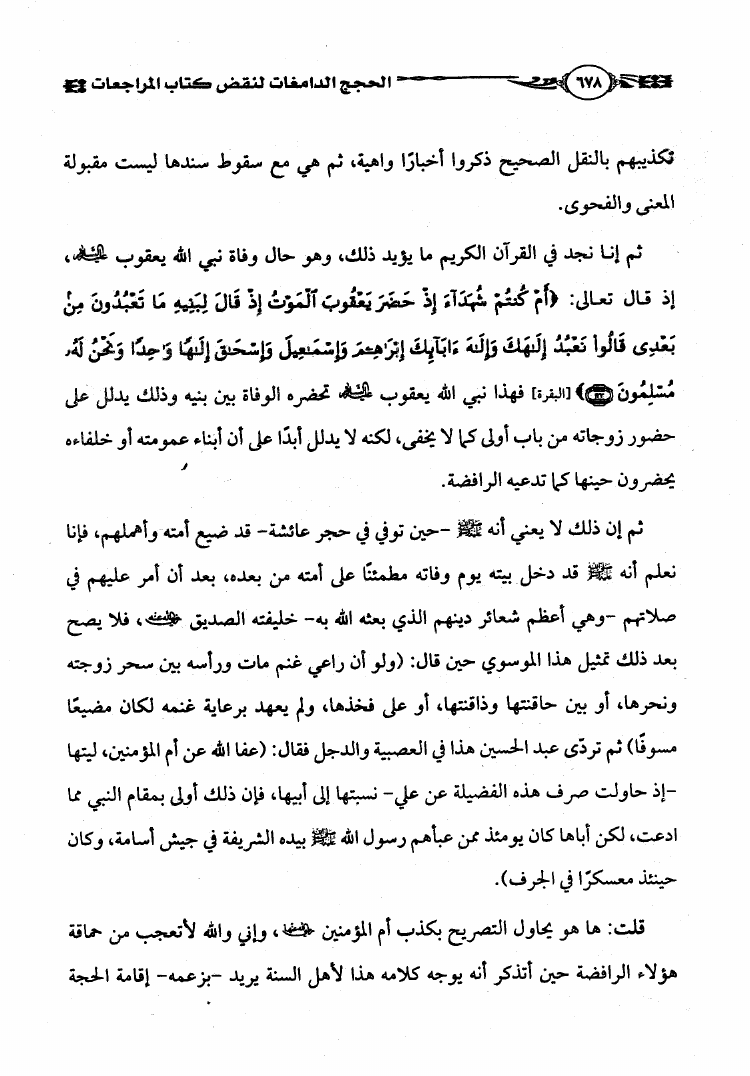 ٦٧٨ الحجج الدامغات لنقض كتاب المراجعات
تكذيبهم بالنقل الصحيح ذكروا أخبارًا واهية، ثم هي مع سقوط سندها ليست مقبولة
المعنى والفحوى.
ثم إنا نجد في القرآن الكريم ما يؤيد ذلك، وهو حال وفاة نبي الله يعقوب عليه السلام،
إذ قال تعالى: ﴿أَمْ كُنتُمْ شُهَدَآءَ إِذْ حَضَرَ يَعْقُوبَ ٱلْمَوْتُ إِذْ قَالَ لِبَنِيهِ مَا تَعْبُدُونَ مِنۢ
بَعْدِى قَالُوا۟ نَعْبُدُ إِلَـٰهَكَ وَإِلَـٰهَ ءَابَآئِكَ إِبْرَٰهِـۧمَ وَإِسْمَـٰعِيلَ وَإِسْحَـٰقَ إِلَـٰهًا وَٰحِدًا وَنَحْنُ لَهُۥ
مُسْلِمُونَ ١٣٣﴾ [البقرة] فهذا نبي الله يعقوب عليه السلام تحضره الوفاة بين بنيه وذلك يدلل على
حضور زوجاته من باب أولى كما لا يخفى، لكنه لا يدلل أبدًا على أن أبناء عمومته أو خلفاءه
يحضرون حينها كما تدعيه الرافضة.
ثم إن ذلك لا يعني أنه ﷺ -حين توفي في حجر عائشة- قد ضيع أمته وأهملهم، فإنا
نعلم أنه ﷺ قد دخل بيته يوم وفاته مطمئنًا على أمته من بعده، بعد أن أمر عليهم في
صلاتهم -وهي أعظم شعائر دينهم الذي بعثه الله به- خليفته الصديق رضي الله عنه، فلا يصح
بعد ذلك تمثيل هذا الموسوي حين قال: (ولو أن راعي غنم مات ورأسه بين سحر زوجته
ونحرها، أو بين حاقنتها وذاقنتها، أو على فخذها، ولم يعهد برعاية غنمه لكان مضيعًا
مسوفًا) ثم تردّى عبد الحسين هذا في العصبية والدجل فقال: (عفا الله عن أم المؤمنين، ليتها
-إذ حاولت صرف هذه الفضيلة عن علي- نسبتها إلى أبيها، فإن ذلك أولى بمقام النبي مما
ادعت، لكن أباها كان يومئذ ممن عبأهم رسول الله ﷺ بيده الشريفة في جيش أسامة، وكان
حينئذ معسكرًا في الجرف).
قلت: ها هو يحاول التصريح بكذب أم المؤمنين رضي الله عنها، وإني والله لأتعجب من حماقة
هؤلاء الرافضة حين أتذكر أنه يوجه كلامه هذا لأهل السنة يريد -بزعمه- إقامة الحجة